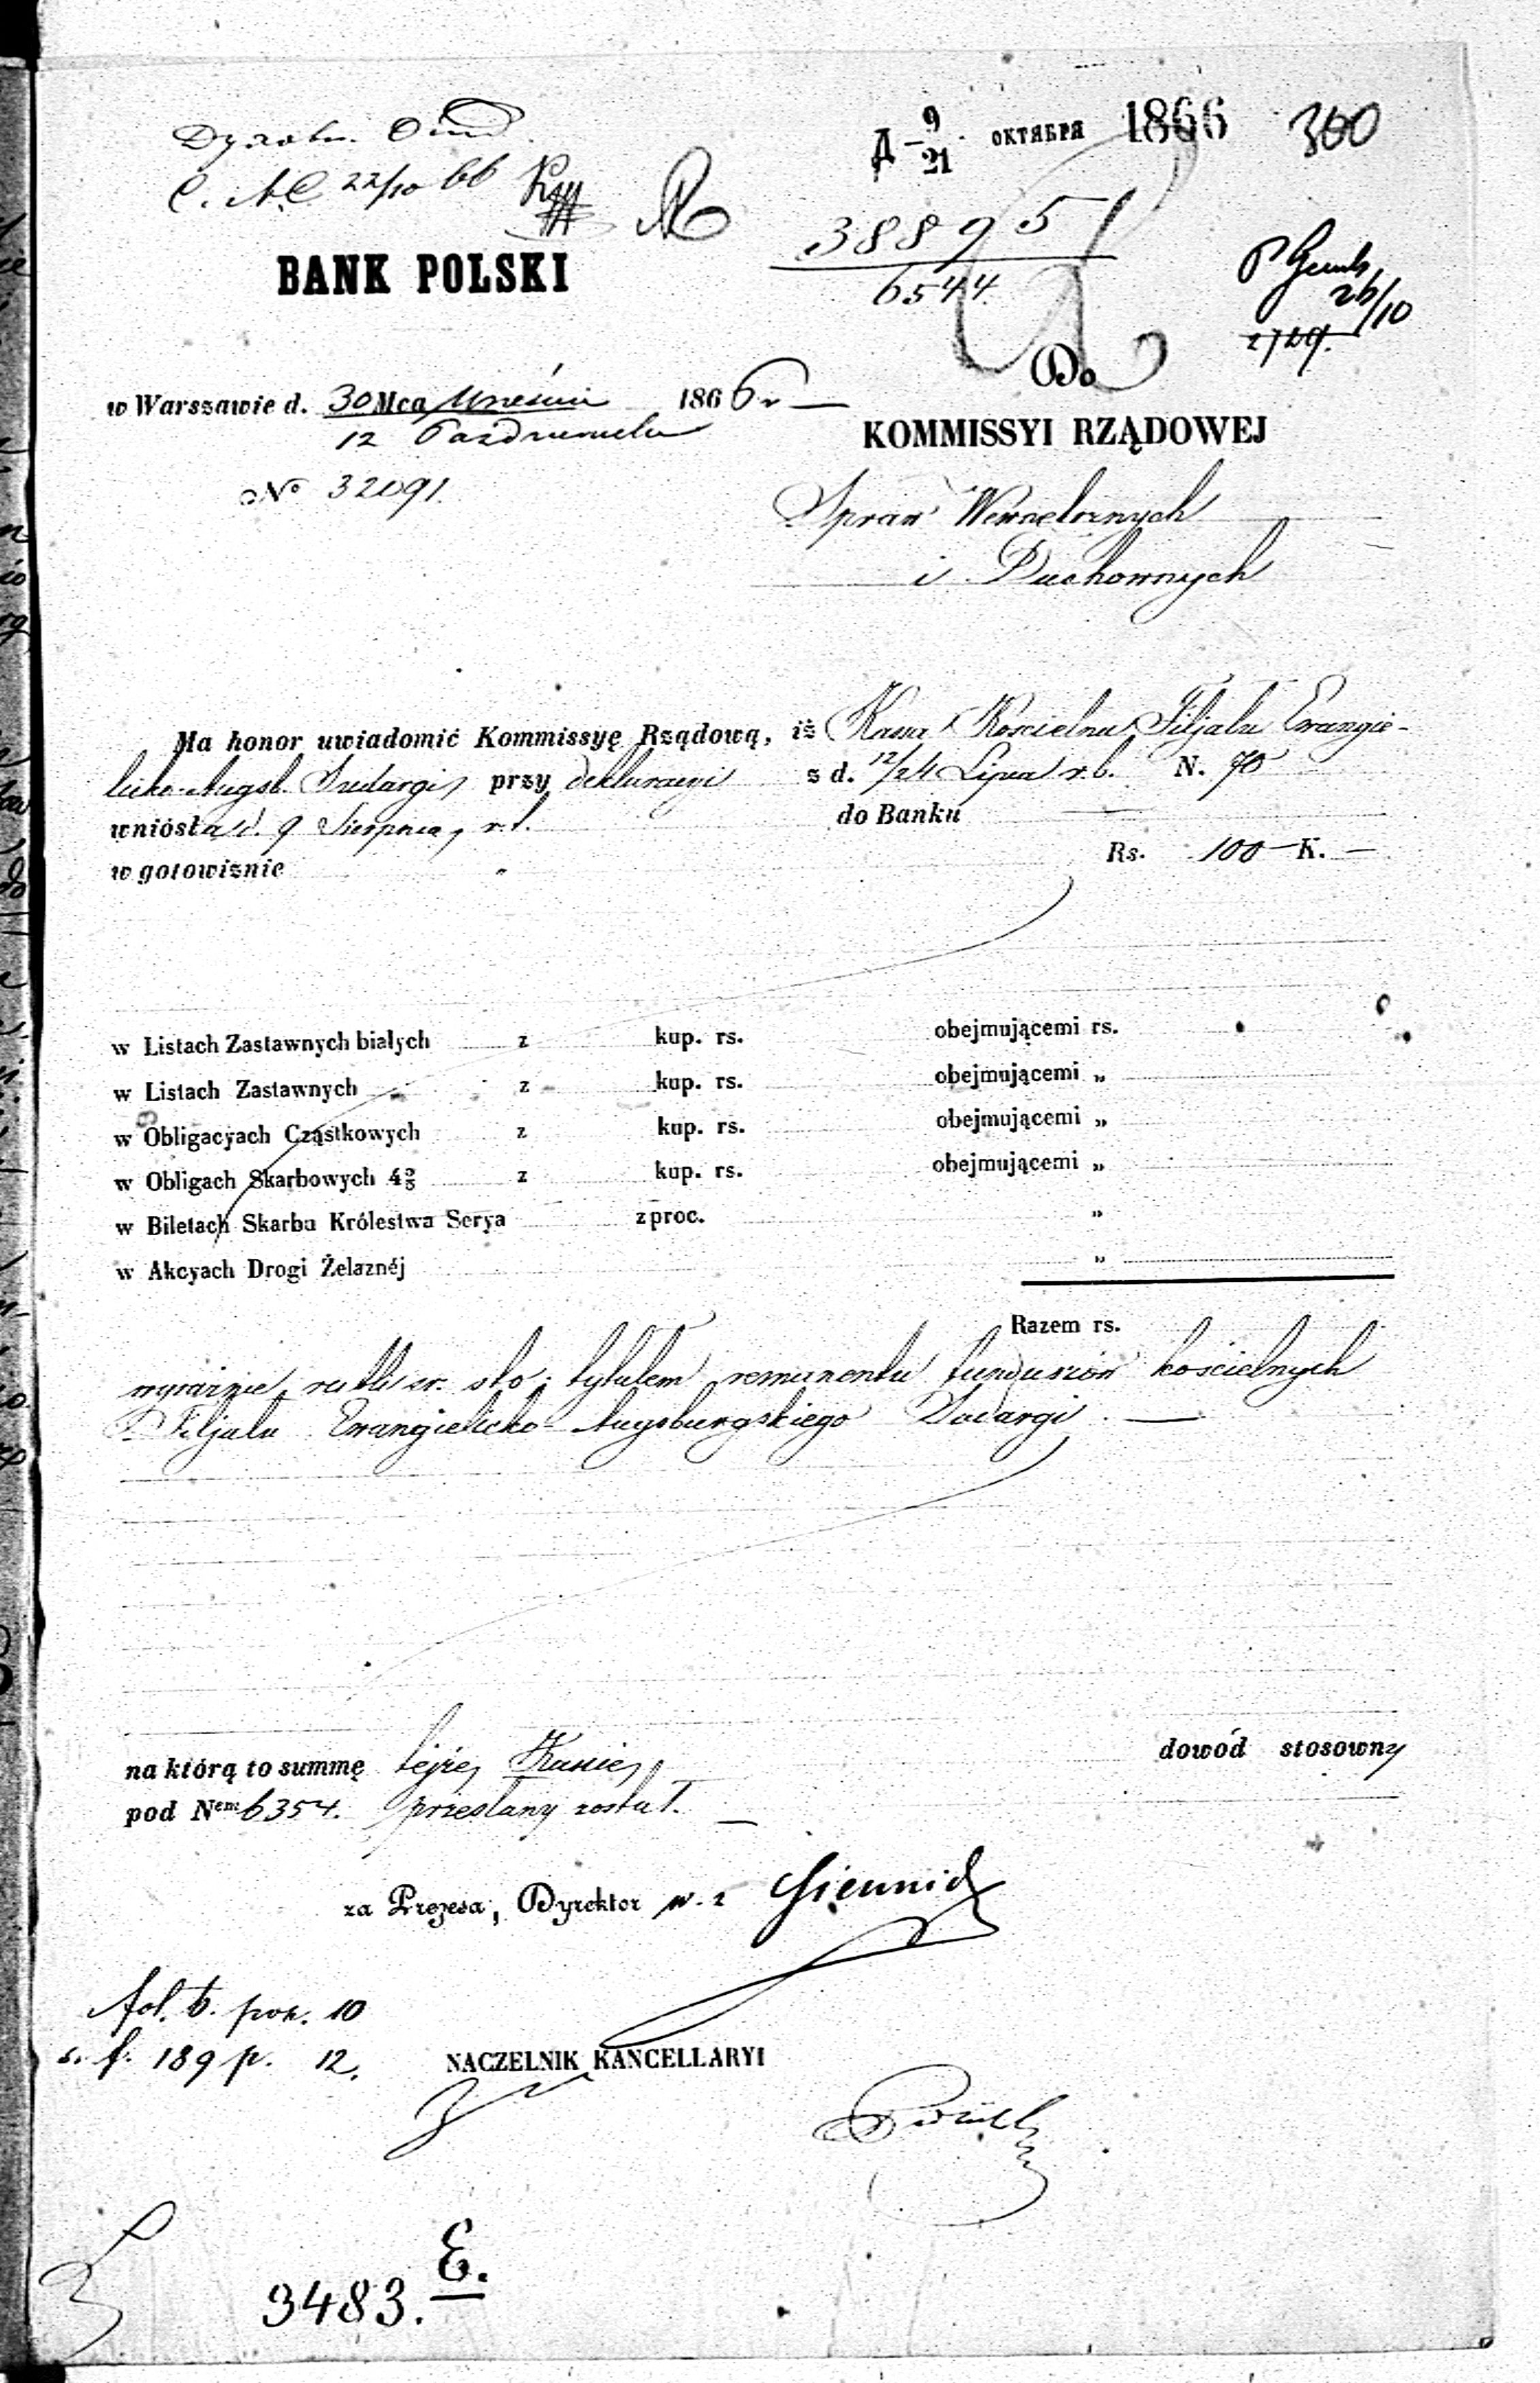 Д 9/21 ОКТЯБРЯ 1866 300
22/10 66
38895
6544
26/10
2729.
BANK POLSKI
Do
w Warszawie d. 30 Mca Wrześnie 1866 r
12 Października
KOMMISSYI RZĄDOWEJ
No 32091.
Spraw Wewnętrznych
i Duchownych
Ma honor uwiadomić Kommissyę Rządową, iż Kassa Kościelna Filjału Ewangie-
licko-Augsb. Sudargi, przy deklaracyi z d. 12/24 Lipca r.b. N. 70
wniosła d. 9 Sierpnia, r.b. do Banku
w gotowiznie " Rs. 100 K. —
w Listach Zastawnych białych z kup. rs. obejmującemi rs.
w Listach Zastawnych z kup. rs. obejmującemi „
w Obligacyach Cząstkowych z kup. rs. obejmującemi „
w Obligach Skarbowych 4% z kup. rs. obejmującemi „
w Biletach Skarbu Królestwa Serya z proc. „
w Akcyach Drogi Żelaznéj „
Razem rs.
wyraźnie rubli sr. sto; tytułem remanentu funduszów kościelnych
Filjału Ewangielicko-Augsburgskiego Sudargi. —
na którą to summę tejże Kassie, dowód stosowny
pod Nem 6354. przesłany został. —
za Prezesa, Dyrektor w. z
fol. 6. poz. 10
s. f. 189 p. 12.
NACZELNIK KANCELLARYI
3483. E.